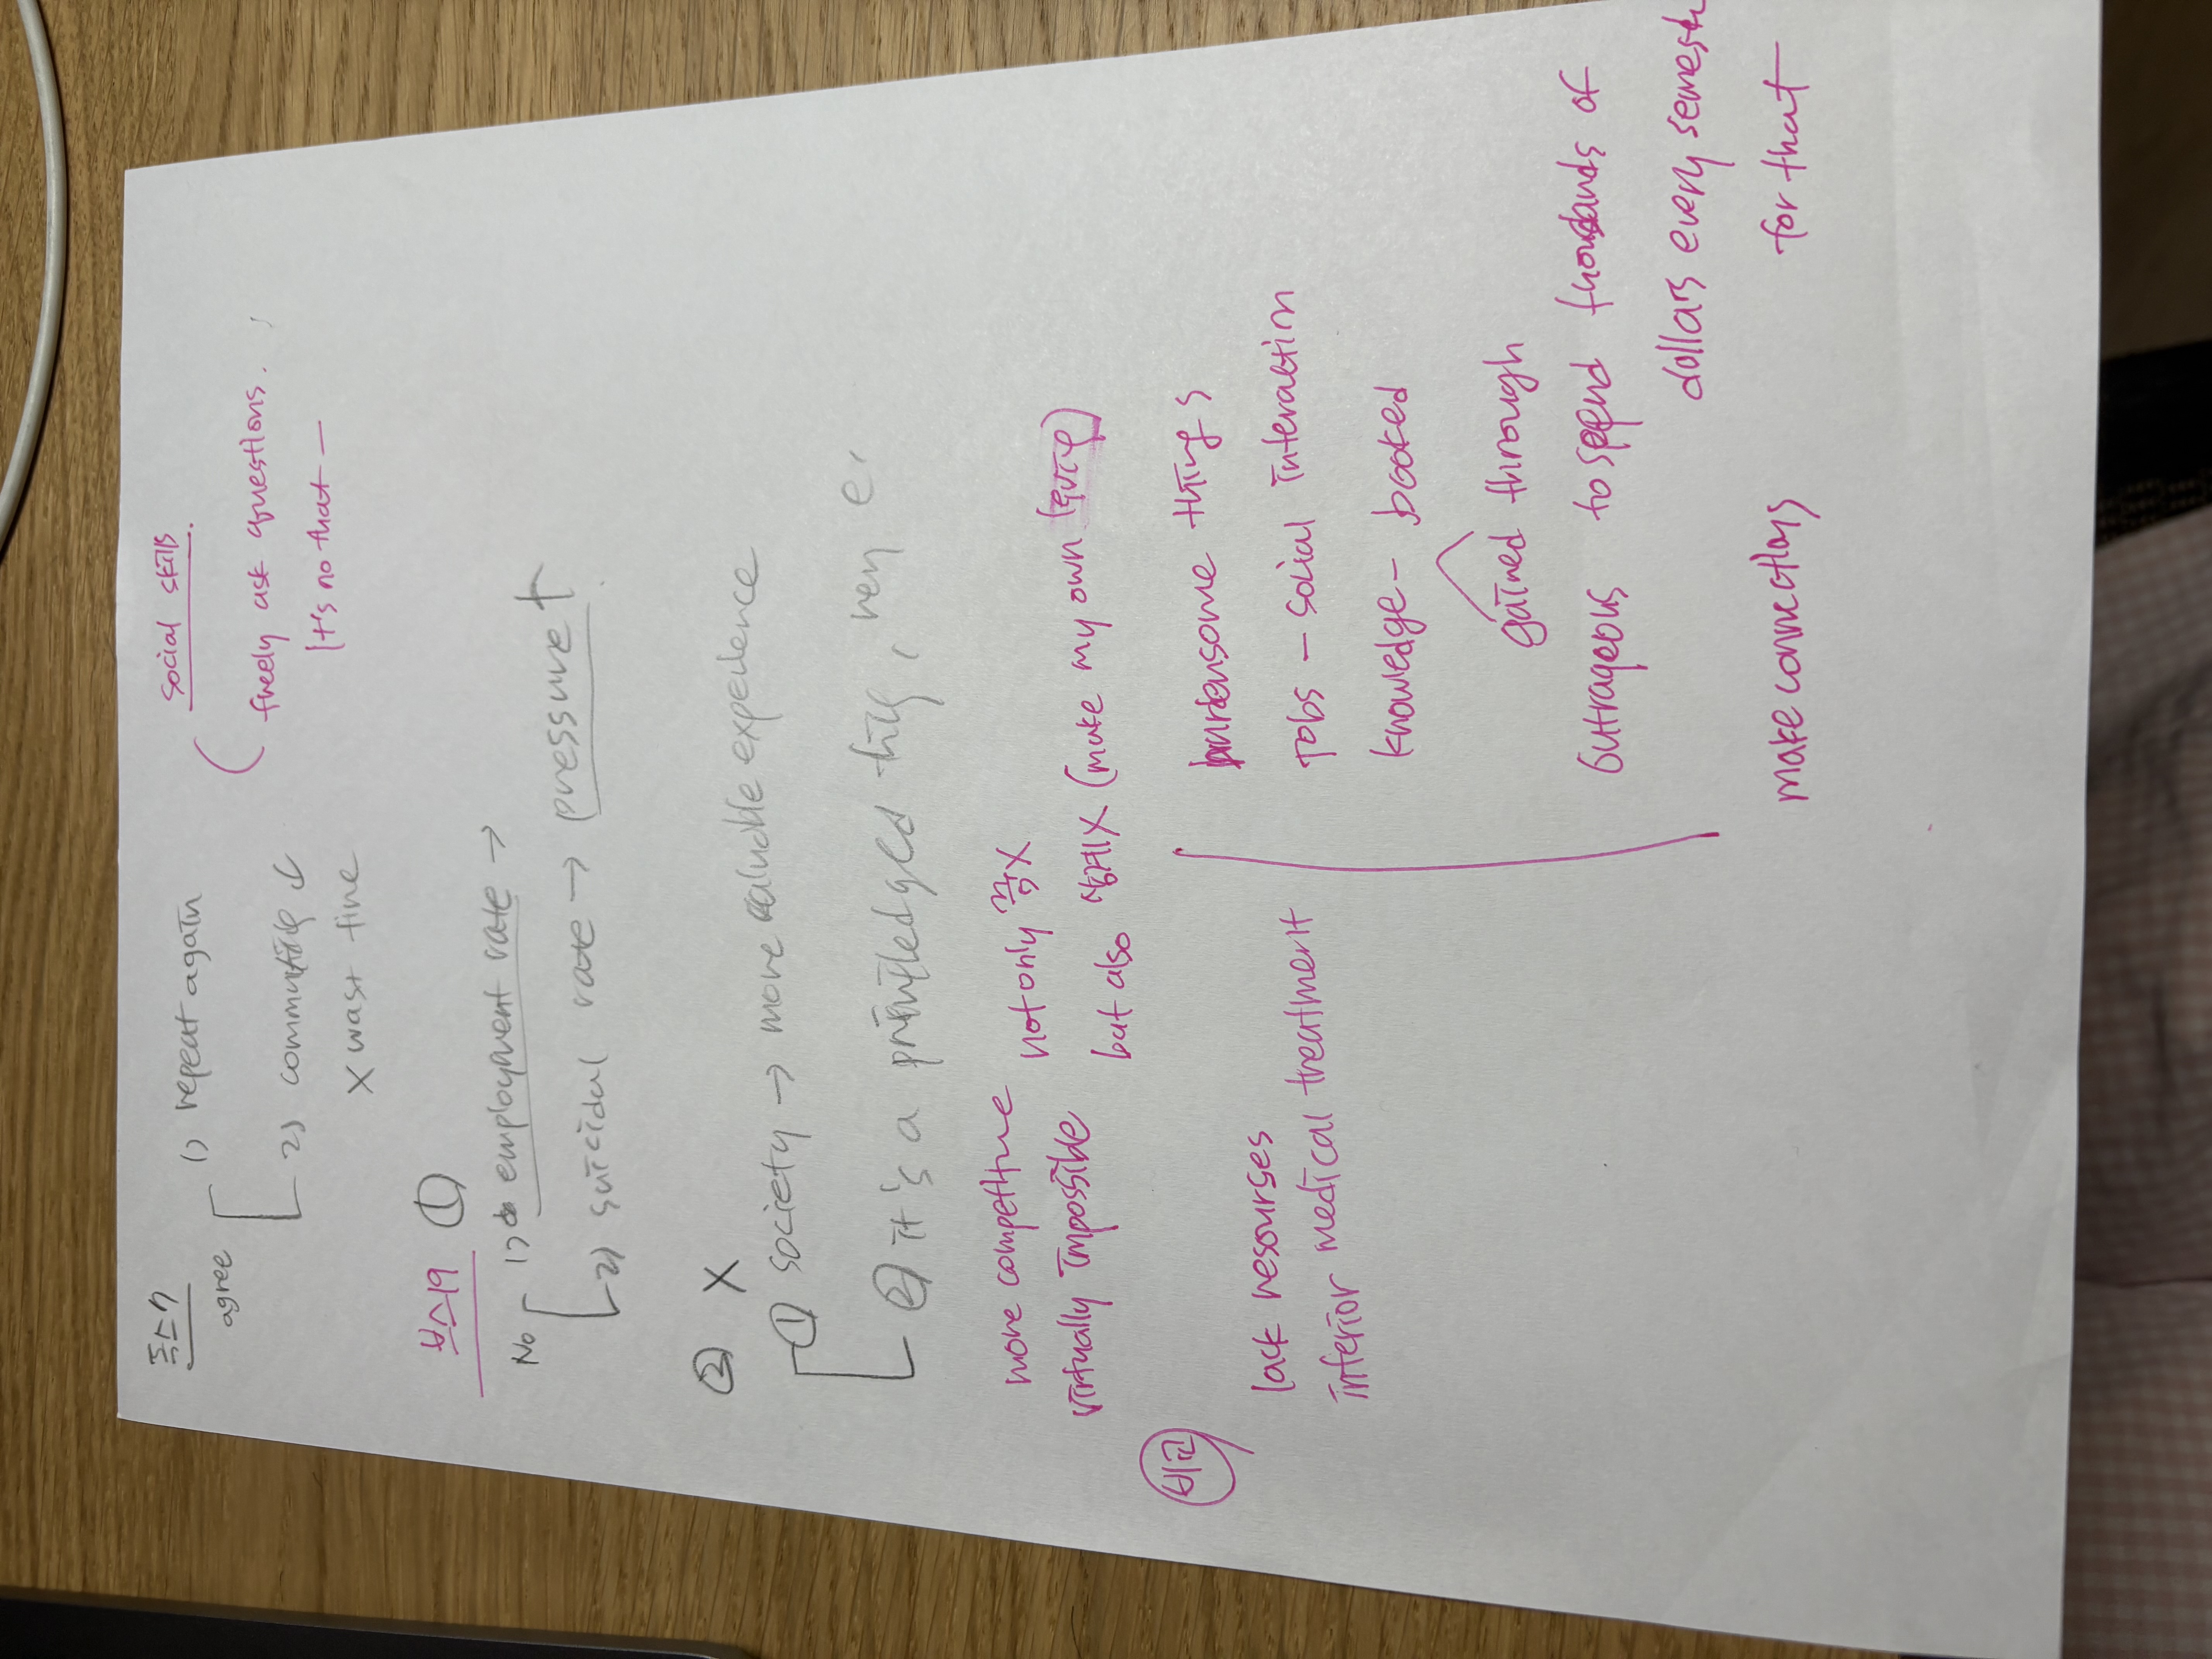 폭스 7
agree
1) repeat again
2) commuting ↓
X wast time
social skills.
( freely ask questions.
It's no that —
보스 19 ①
No 1) employment rate →
2) suicidal rate → pressure ↑
② X
① society → more valuable experience
② it's a priviledged thing, very e
more competitive
virtually impossible
not only 폭X
but also 합세X (make my own
비교
lack resourses
inferior medical treatment
burdensome things
jobs - social interaction
knowledge - booked
gained through
outrageous to spend thousands of
dollars every semester
for that
make connections